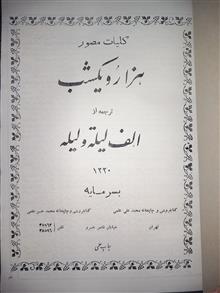 کلیات مصور
هزار و یکشب
ترجمه از
الف لیلة ولیله
۱۳۲۰
بسرمایه
کتابفروشی و چاپخانه محمد علی علمی کتابفروشی و چاپخانه محمد حسن علمی
تهران خیابان ناصر خسرو تلفن
چاپ علمی